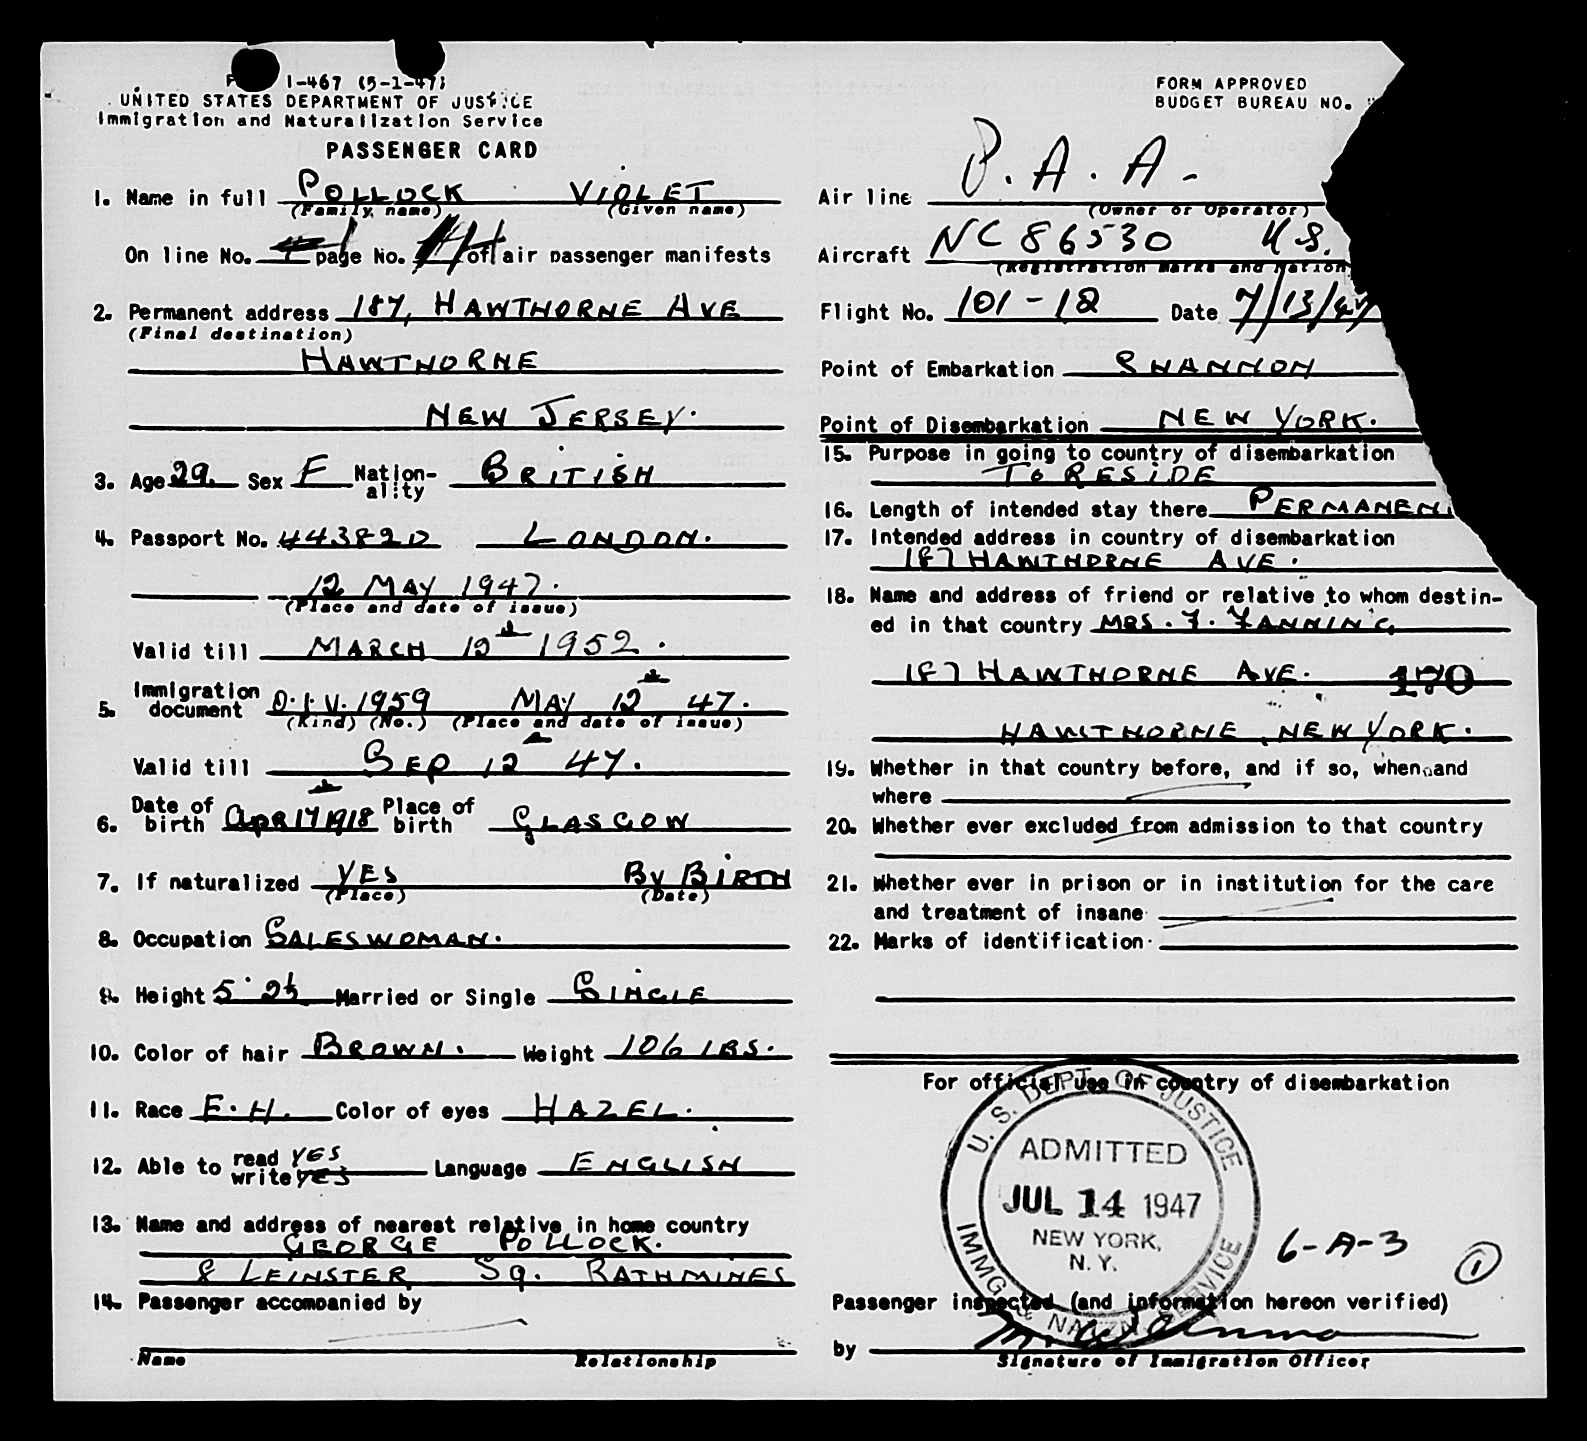 I-467 (5-1-47)
UNITED STATES DEPARTMENT OF JUSTICE
Immigration and Naturalization Service
PASSENGER CARD
1. Name in full POLLOCK VIOLET
(Family name) (Given name)
On line No. 1 page No. of air passenger manifests
2. Permanent address 187, HAWTHORNE AVE
(Final destination)
HAWTHORNE
NEW JERSEY.
3. Age 29. Sex F Nation-ality BRITISH
4. Passport No. LONDON.
12 MAY 1947.
(Place and date of issue)
Valid till MARCH 12th 1952.
5. Immigration document Q.I.V. 1959 MAY 12th 47.
(Kind) (No.) (Place and date of issue)
Valid till SEP 12th 47.
6. Date of birth APR 17th 1918 Place of birth GLASGOW
7. If naturalized YES BY BIRTH
(Place) (Date)
8. Occupation SALESWOMAN.
9. Height 5' 2½ Married or Single SINGLE
10. Color of hair BROWN. Weight 106 LBS.
11. Race E.H. Color of eyes HAZEL.
12. Able to read YES write YES Language ENGLISH
13. Name and address of nearest relative in home country
GEORGE POLLOCK.
8 LEINSTER SQ. RATHMINES
14. Passenger accompanied by
Name Relationship
FORM APPROVED
BUDGET BUREAU NO.
Air line P.A.A.
(Owner or Operator)
Aircraft NC 86530 U.S.
(Registration marks and Nation
Flight No. 101-12 Date 7/13/47
Point of Embarkation SHANNON
Point of Disembarkation NEW YORK.
15. Purpose in going to country of disembarkation
TO RESIDE
16. Length of intended stay there PERMANEN
17. Intended address in country of disembarkation
187 HAWTHORNE AVE.
18. Name and address of friend or relative to whom destin-
ed in that country MRS. F. FANNING
187 HAWTHORNE AVE. 170
HAWTHORNE, NEW YORK.
19. Whether in that country before, and if so, when and
where
20. Whether ever excluded from admission to that country
21. Whether ever in prison or in institution for the care
and treatment of insane
22. Marks of identification
For official use in country of disembarkation
U.S. DEPT. OF JUSTICE
ADMITTED
JUL 14 1947
NEW YORK,
N.Y.
IMMG. & NATZN. SERVICE
6-A-3 1
Passenger inspected (and information hereon verified)
by
Signature of Immigration Officer